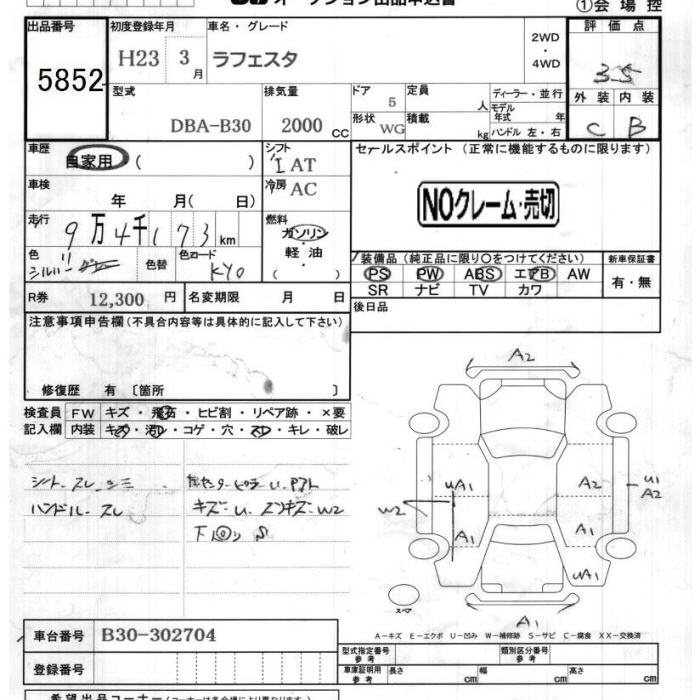 オークション出品申込書
①会場控
出品番号
5852
初度登録年月
H23 3月
車名・グレード
ラフェスタ
2WD
・
4WD
評価点
3.5
外装 内装
C B
型式
DBA-B30
排気量
2000 CC
ドア
5
形状
WG
定員
人
積載
kg
ディーラー・並行
モデル年式 年
ハンドル 左・右
車歴
自家用 ( )
シフト
I AT
車検
年 月( 日)
冷房
AC
走行
9万4千173km
燃料
ガソリン
・
軽油
( )
色
シルバー
色替
色コード
KY0
セールスポイント (正常に機能するものに限ります)
NOクレーム・売切
装備品(純正品に限り○をつけてください)
PS PW ABS エアB AW
SR ナビ TV カワ
新車保証書
有・無
R券 12,300円
名変期限 月 日
後日品
注意事項申告欄(不具合内容等は具体的に記入して下さい)
修復歴 有〔箇所 〕
検査員記入欄
FW キズ・飛石・ヒビ割・リペア跡・×要
内装 キズ・汚レ・コゲ・穴・スレ・キレ・破レ
シート スレ シミ
ハンドル スレ
キズ U W2
A2
UA1
A2
U1
A2
W2
A1
A1
UA1
A1
スペア
A−キズ E−エクボ U−凹み W−補修跡 S−サビ C−腐食 XX−交換済
車台番号 B30-302704
登録番号
型式指定番号
参考
類別区分番号
参考
車庫証明用
参考
長さ cm
幅 cm
高さ cm
希望出品コーナー